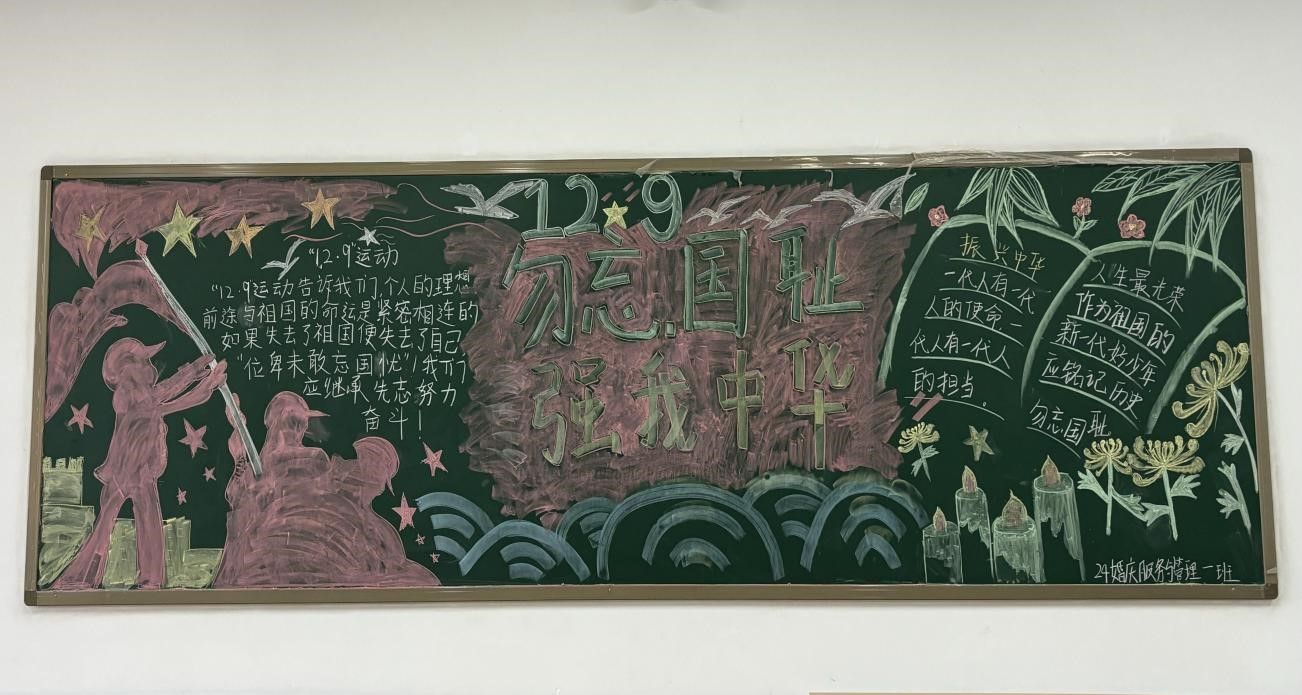 "12.9"运动
"12.9运动告诉我们,个人的理想
前途与祖国的命运是紧密相连的
如果失去了祖国便失去了自己,
"位卑未敢忘国忧"!我们
应继承先志努力
奋斗!
12.9
勿忘国耻
强我中华
振兴中华
一代人有一代
人的使命一
代人有一代人
的担当.
人生最光荣
作为祖国的
新一代好少年
应铭记历史
勿忘国耻
24婚庆服务与管理一班